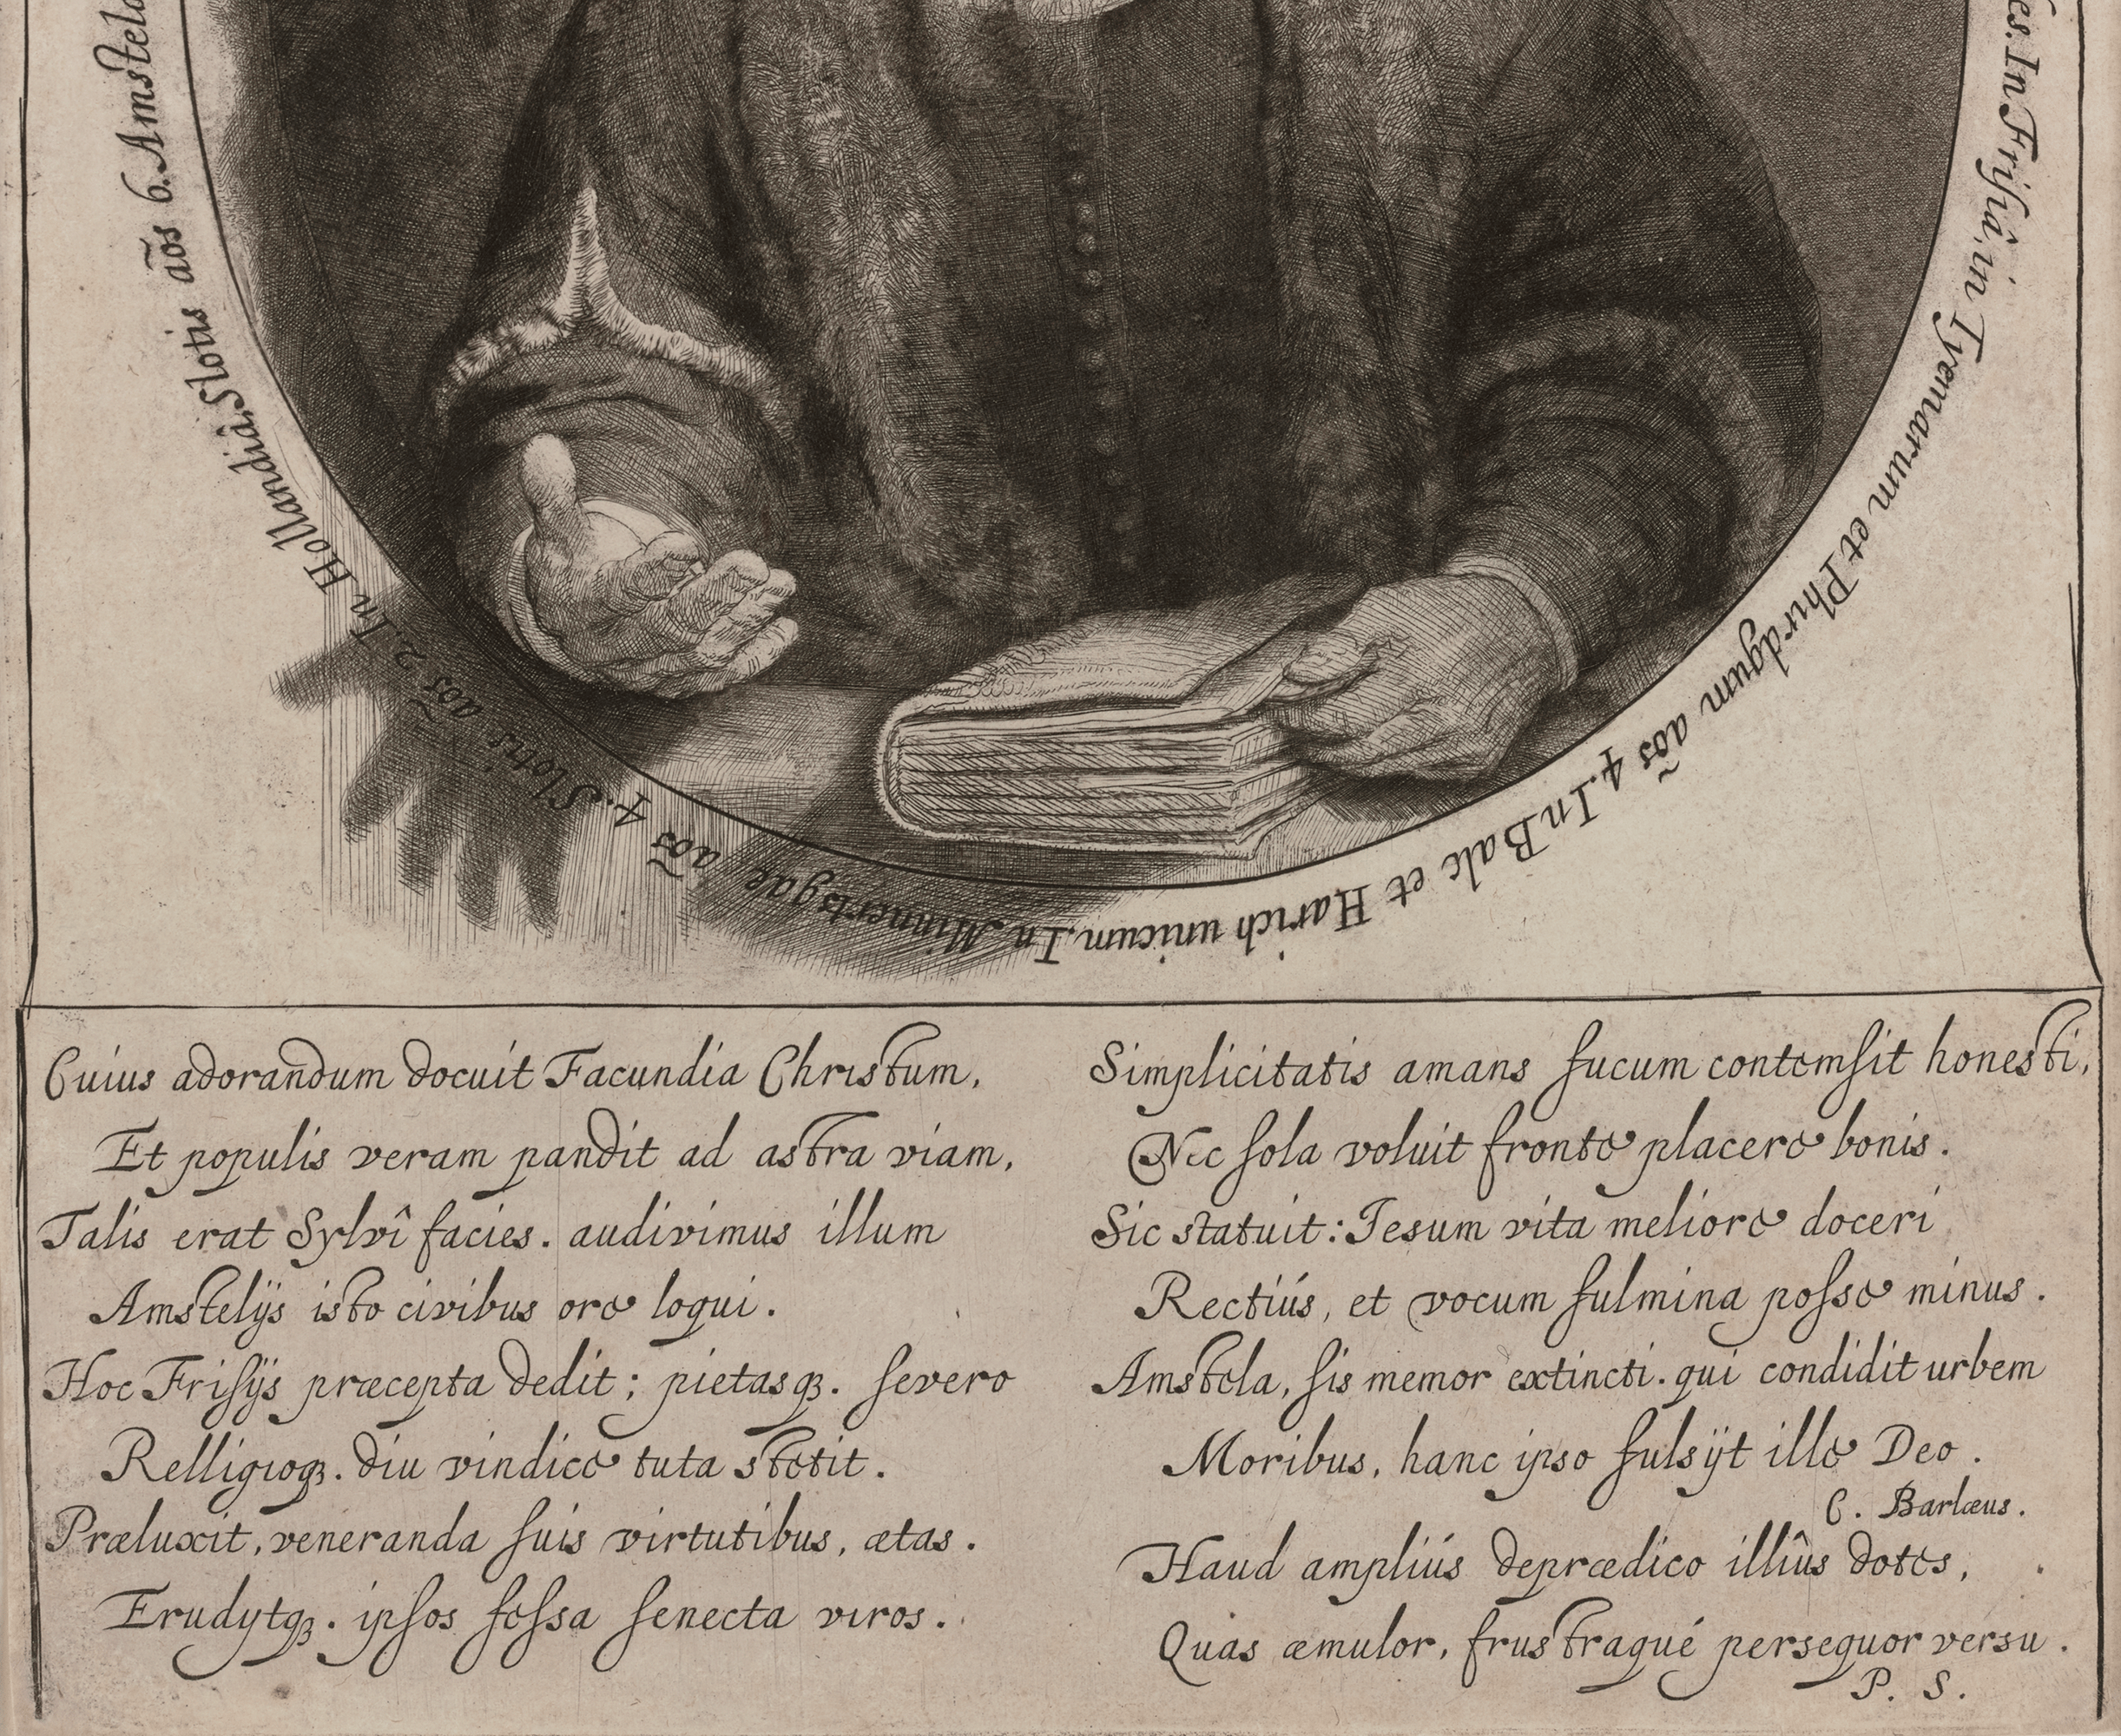 es. In Frisiâ, in Tyemarum et Phirdgum aõs 4. In Bale et Harich unicum. In Minnertsgae aõs 4. Slotis aõs 2. In Hollandiâ, Slotis aõs 6. Amstela
Cuius adorandum docuit Facundia Christum,
Et populis veram pandit ad astra viam,
Talis erat Sylvî facies. audivimus illum
Amstelÿs isto civibus ore loqui.
Hoc Frisÿs præcepta dedit; pietasqꝫ. severo
Relligioqꝫ. diu vindice tuta stetit.
Præluxit, veneranda suis virtutibus, ætas.
Erudÿtqꝫ. ipsos fessa senecta viros.
Simplicitatis amans fucum contemsit honesti,
Nec sola voluit fronte placere bonis.
Sic statuit: Iesum vita meliore doceri
Rectiús, et vocum fulmina posse minus.
Amstela, sis memor extincti. qui condidit urbem
Moribus, hanc ipso fulsÿt ille Deo.
C. Barlæus.
Haud ampliús deprædico illîus dotes,
Quas æmulor, frustraqué persequor versu.
P. S.